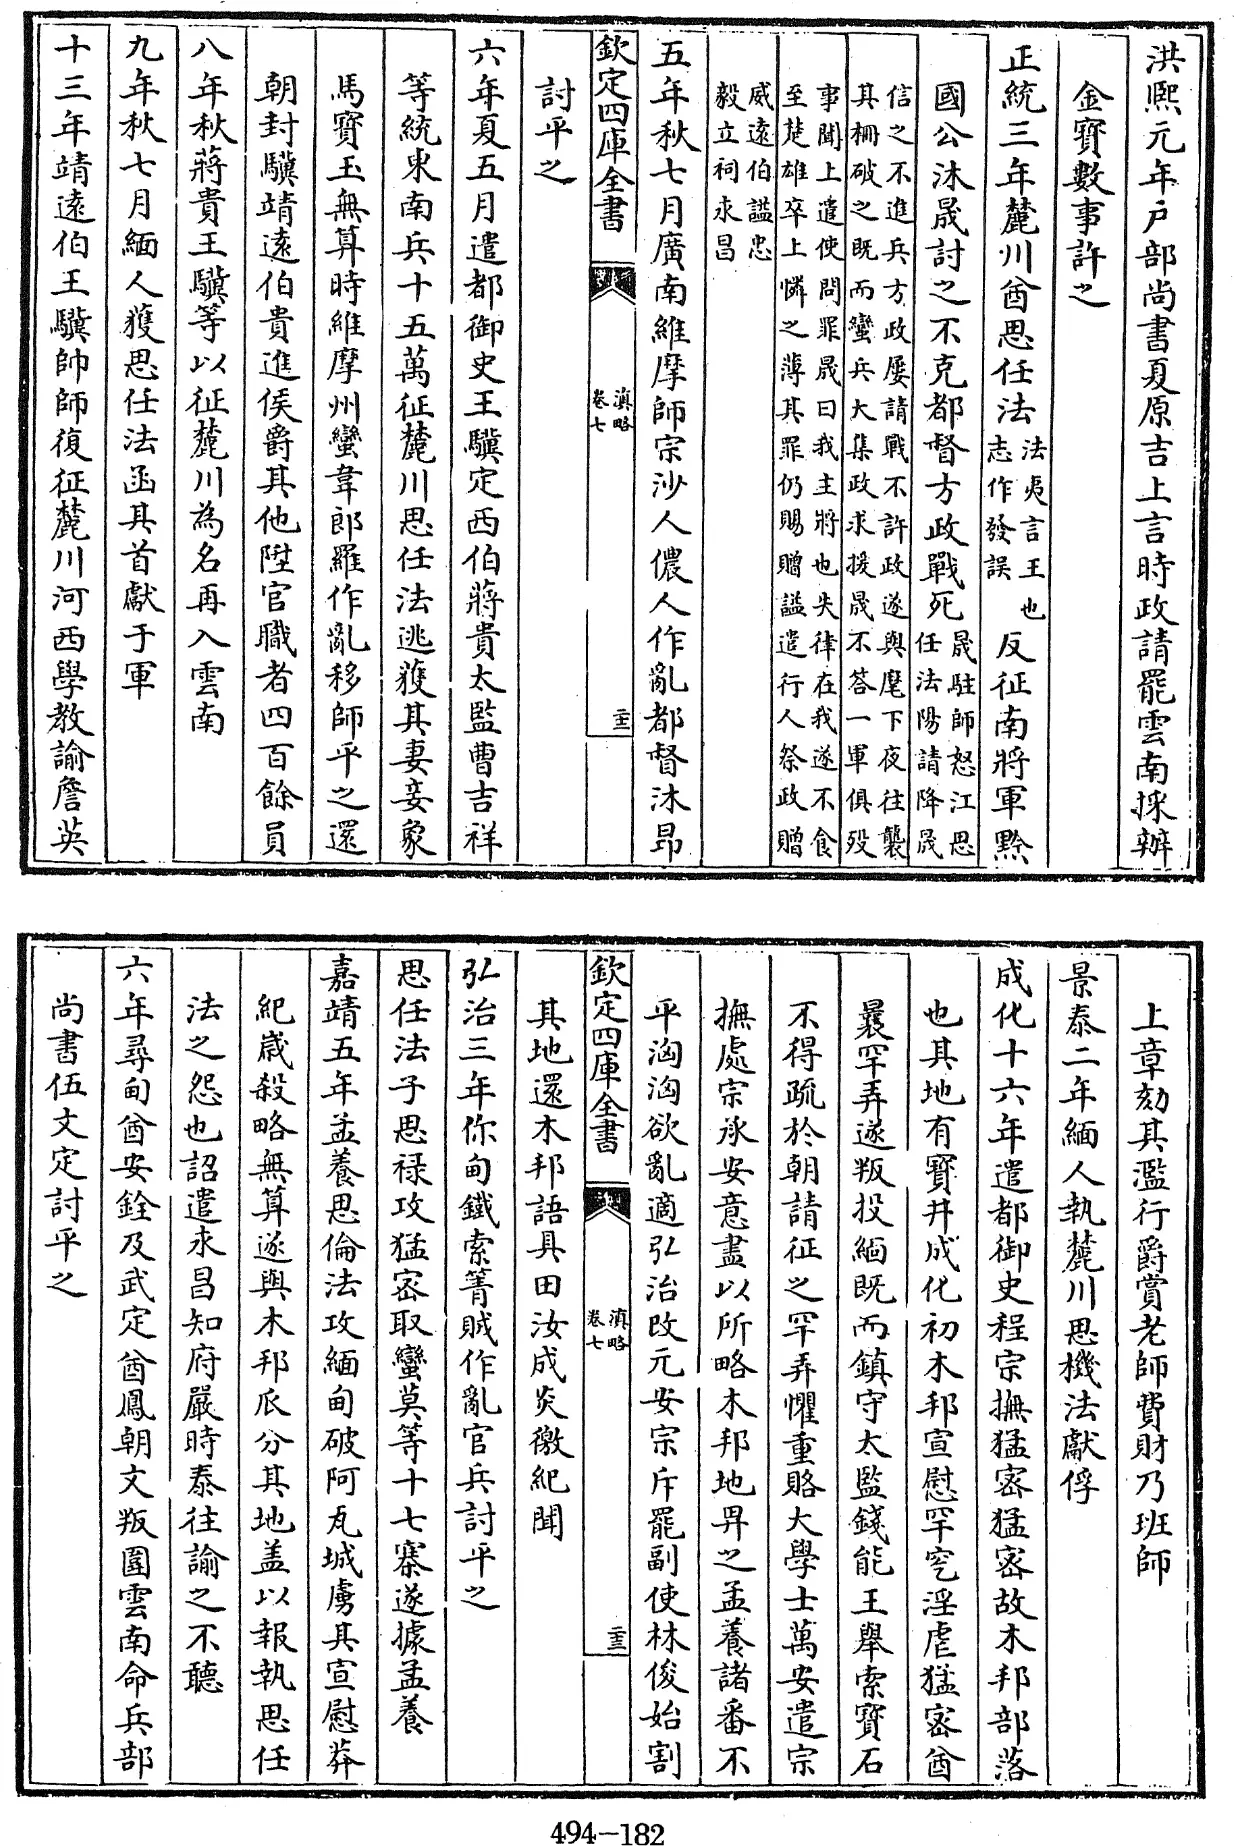 洪熙元年戶部尚書夏原吉上言時政請罷雲南採辦
金寶數事許之
正統三年麓川酋思任法法夷言王也志作發誤反征南將軍黔
國公沐晟討之不克都督方政戰死晟駐師怒江思任法陽請降晟
信之不進兵方政屢請戰不許政遂與麾下夜往襲
其柵破之既而蠻兵大集政求援晟不答一軍俱歿
事聞上遣使問罪晟曰我主將也失律在我遂不食
至楚雄卒上憐之薄其罪仍賜贈謚遣行人祭政贈
威遠伯謚忠
毅立祠永昌
五年秋七月廣南維摩師宗沙人儂人作亂都督沐昂
欽定四庫全書
滇略
卷七
二十三
討平之
六年夏五月遣都御史王驥定西伯蔣貴太監曹吉祥
等統東南兵十五萬征麓川思任法逃獲其妻妾象
馬寶玉無算時維摩州蠻韋郎羅作亂移師平之還
朝封驥靖遠伯貴進侯爵其他陞官職者四百餘員
八年秋蔣貴王驥等以征麓川為名再入雲南
九年秋七月緬人獲思任法函其首獻于軍
十三年靖遠伯王驥帥師復征麓川河西學教諭詹英
上章劾其濫行爵賞老師費財乃班師
景泰二年緬人執麓川思機法獻俘
成化十六年遣都御史程宗撫猛密猛密故木邦部落
也其地有寶井成化初木邦宣慰罕窆淫虐猛密酋
曩罕弄遂叛投緬既而鎮守太監錢能王舉索寶石
不得疏於朝請征之罕弄懼重賂大學士萬安遣宗
撫處宗承安意盡以所略木邦地畀之孟養諸番不
平洶洶欲亂適弘治改元安宗斥罷副使林俊始割
欽定四庫全書
滇略
卷七
其地還木邦語具田汝成炎徼紀聞
弘治三年你甸鐵索箐賊作亂官兵討平之
思任法子思祿攻猛密取蠻莫等十七寨遂據孟養
嘉靖五年孟養思倫法攻緬甸破阿瓦城虜其宣慰莽
紀歲殺略無算遂與木邦瓜分其地盖以報執思任
法之怨也詔遣永昌知府嚴時泰往諭之不聽
六年尋甸酋安銓及武定酋鳳朝文叛圍雲南命兵部
尚書伍文定討平之
494-182